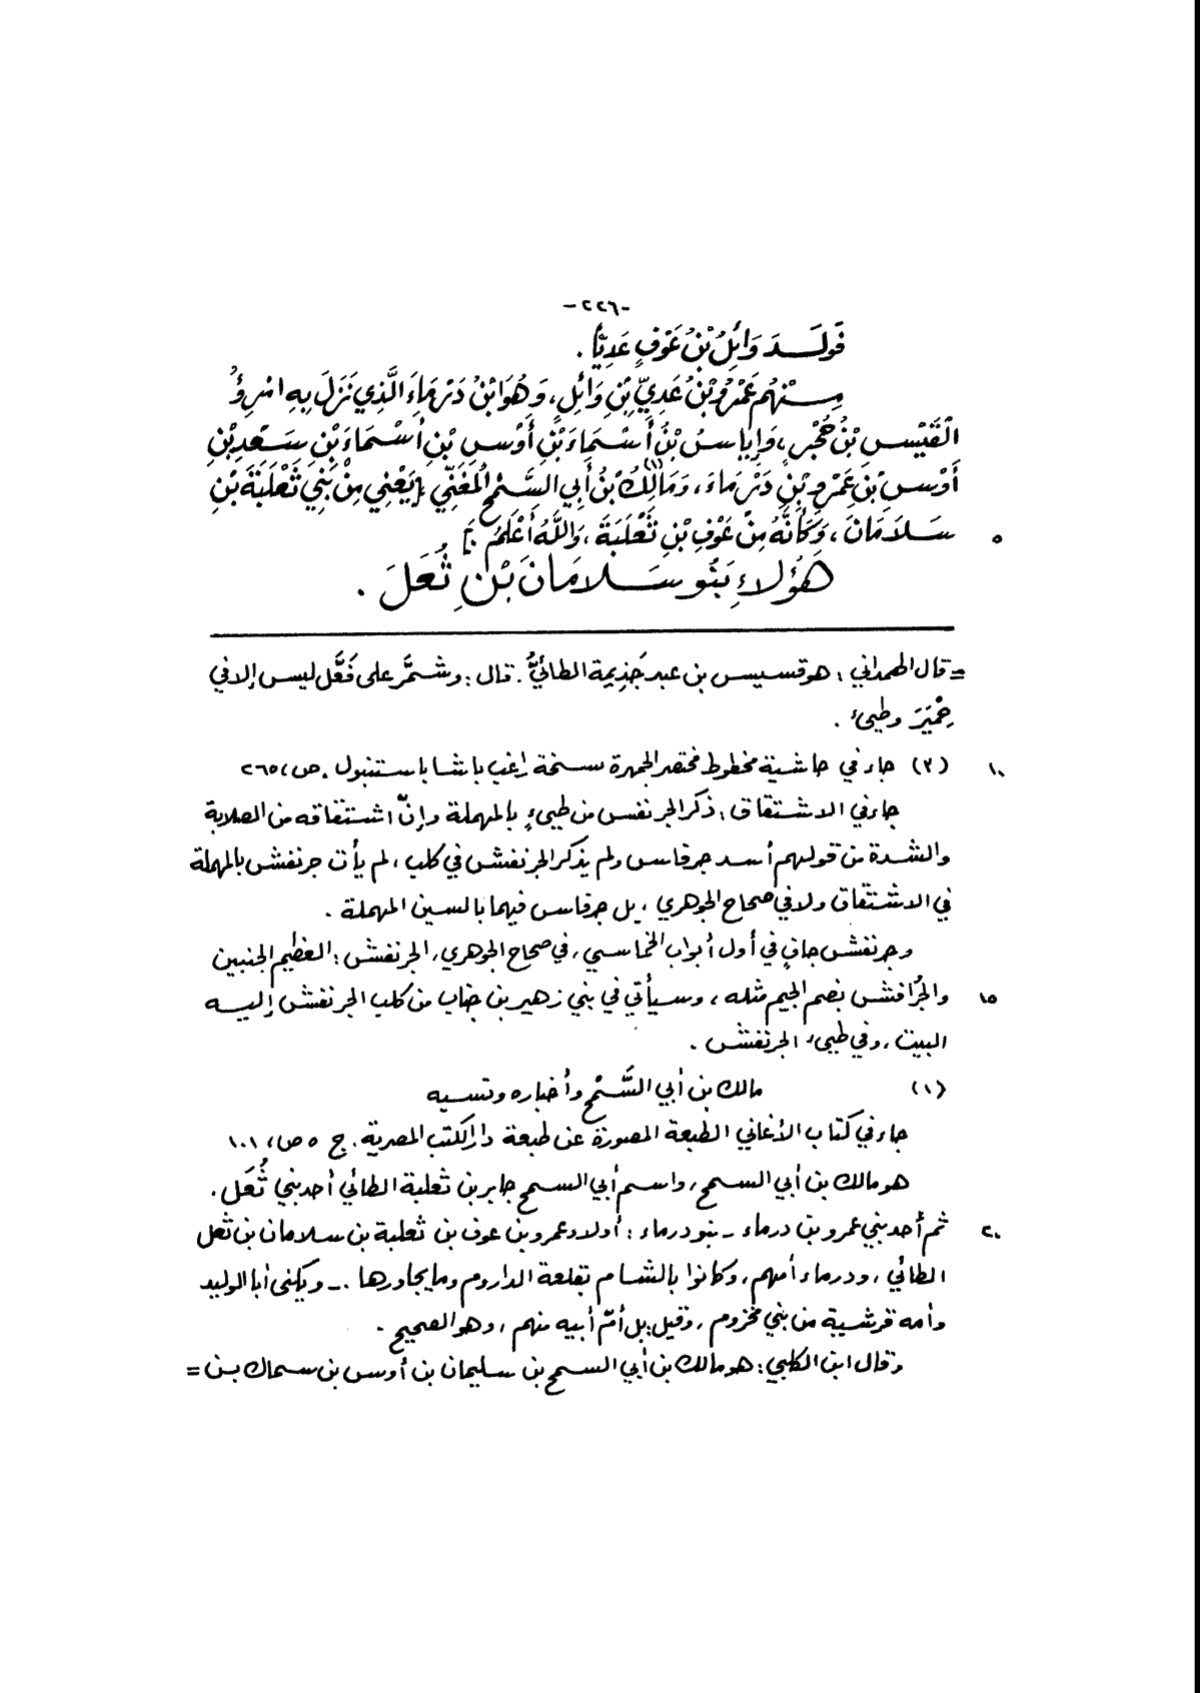 -٢٢٦-
فَولَــدَ وَائِلُ بْنُ عَوْفٍ عَدِيًّا .
مِــنْهُم عَمْرُو بْنُ عَدِيِّ بْنِ وَائِلٍ، وَهُوَ ابْنُ دَرْمَاءَ الَّذِي نَزَلَ بِهِ امْرِؤُ
الْقَيْسِ بْنُ حُجْرٍ، وَإِيَاسُ بْنُ أَسْمَاءَ بْنِ أَوْسِ بْنِ أَسْمَاءَ بْنِ سَعْدِ بْنِ
أَوْسِ بْنِ عَمْرِو بْنِ دَرْمَاءَ، وَمَالِكُ بْنُ أَبِي السَّمْحِ المُغَنِّي (١) [يَعْنِي مِنْ بَنِي ثَعْلَبَةَ بْنِ
سَلَامَانَ، وَكَأَنَّهُ مِنْ عَوْفِ بْنِ ثَعْلَبَةَ، وَاللَّهُ أَعْلَمُ.] ٥
هَؤُلاءِ بَنُو سَــلامَانَ بْنِ ثُعَلَ .
= قال الهمداني : هو قسيس بن عبد جَذِيمة الطائيُّ . قال : وشمَّر على فَعَّل ليس إلا في
حِمْيَرَ وطيء .
(٣) جاء في حاشية مخطوط مختصر الجمهرة نسخة راغب باشا باستنبول . ص، ٢٦٥ ١٠
جاء في الاشتقاق : ذكر الجرنفس من طيىءٍ بالمهملة وإنّ اشتقاقه من الصلابة
والشدة من قولهم أسد جرفاس ولم يذكر الجرنفش في كلب ، لم يأت جرنفش بالمهملة
في الاشتقاق ولا في صحاح الجوهري ، بل جرفاس فيهما بالسين المهملة .
وجرنفش جافٍ في أول أبواب الخماسي ، في صحاح الجوهري ، الجرنفش : العظيم الجنبين
والجُرافش بضم الجيم مثله ، وسيأتي في بني زهير بن جناب من كلب الجرنفش إليــه ١٥
البيت ، وفي طيىء الجرنفش .
(١) مالك بن أبي السَّمْح وأخباره ونسبه
جاء في كتاب الأغاني الطبعة المصورة عن طبعة دار الكتب المصرية . ج ٥ ص، ١٠١
هو مالك بن أبي السمح ، واسم أبي السمح جابر بن ثعلبة الطائي أحد بني ثُعَل .
ثم أحد بني عمرو بن درماء - بنو درماء : أولاد عمرو بن عوف بن ثعلبة بن سلامان بن ثعل ٢٠
الطائي ، ودرماء أمهم ، وكانوا بالشام بقلعة الداروم وما يجاورها .- ويكنى أبا الوليد
وأمه قرشية من بني مخزوم ، وقيل : بل أمّ أبيه منهم ، وهو الصحيح .
وقال ابن الكلبي : هو مالك بن أبي السمح بن سليمان بن أوس بن سماك بــن =